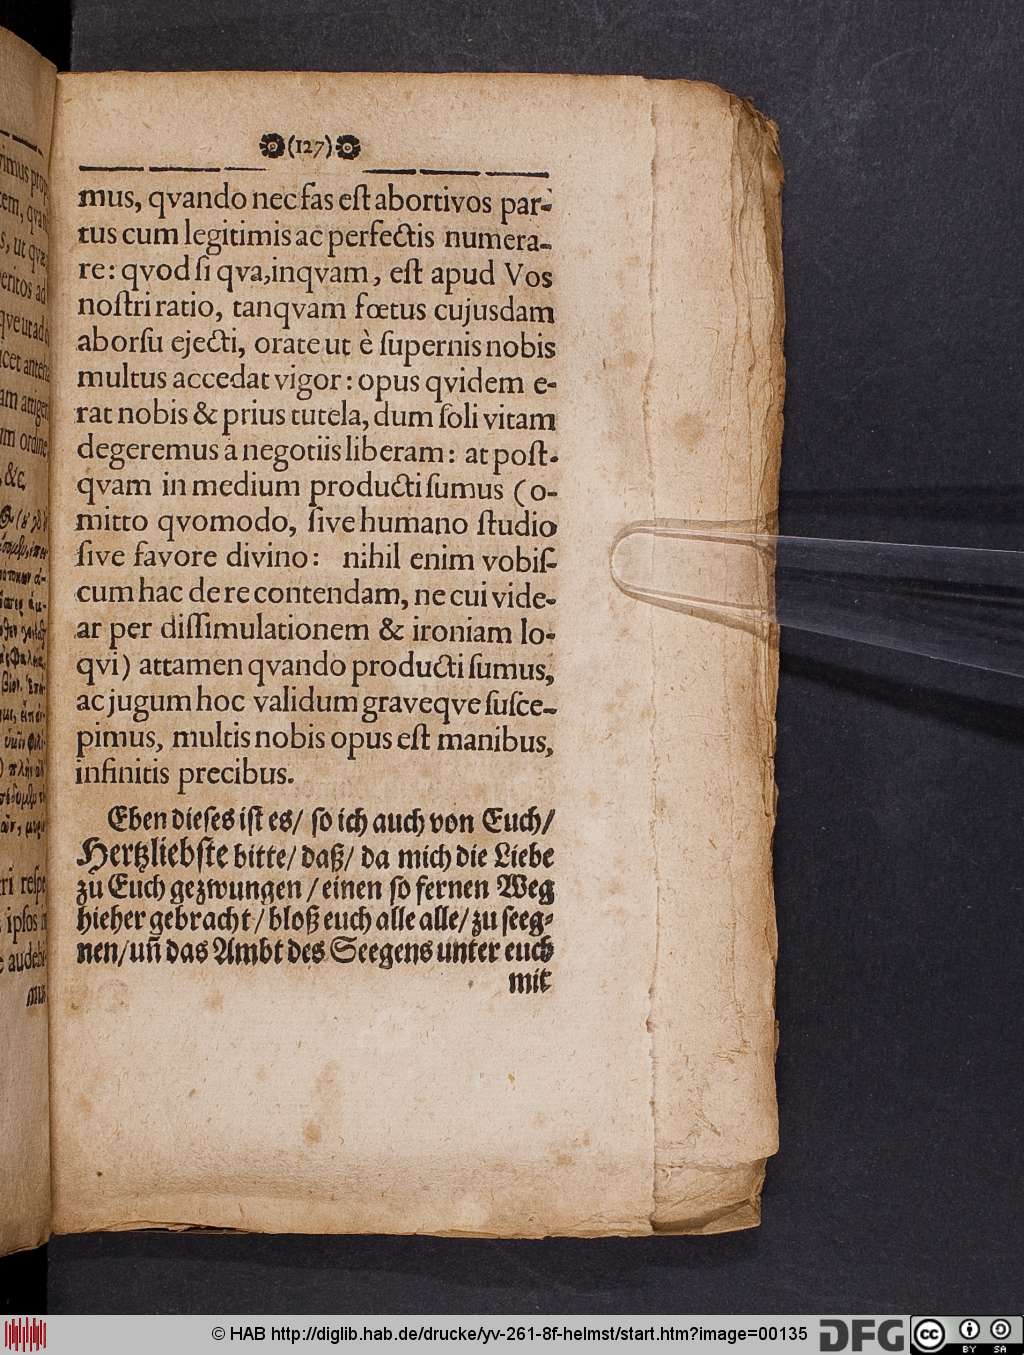 (127)
mus, qvando nec fas eſt abortivos par-
tus cum legitimis ac perfectis numera-
re: qvod ſi qva, inqvam, eſt apud Vos
noſtri ratio, tanqvam fœtus cujusdam
aborſu ejecti, orate ut è ſupernis nobis
multus accedat vigor: opus qvidem e-
rat nobis & prius tutela, dum ſoli vitam
degeremus a negotiis liberam: at poſt-
qvam in medium producti ſumus (o-
mitto qvomodo, ſive humano ſtudio
ſive favore divino: nihil enim vobiſ-
cum hac de re contendam, ne cui vide-
ar per diſſimulationem & ironiam lo-
qvi) attamen qvando producti ſumus,
ac jugum hoc validum graveqve ſuſce-
pimus, multis nobis opus eſt manibus,
infinitis precibus.
Eben dieſes iſt es/ ſo ich auch von Euch/
Hertzliebſte bitte/ daß/ da mich die Liebe
zu Euch gezwungen / einen ſo fernen Weg
hieher gebracht / bloß euch alle alle/ zu ſeeg-
nen/ uñ das Ambt des Seegens unter euch
mit
© HAB http://diglib.hab.de/drucke/yv-261-8f-helmst/start.htm?image=00135
DFG
cc BY SA